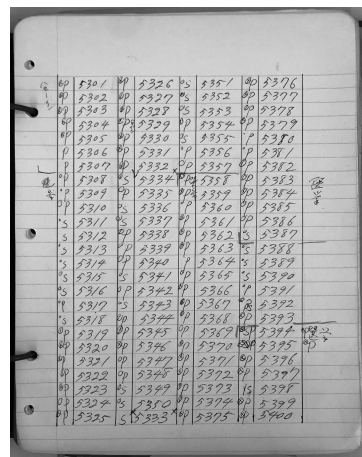 op 5301 op 5326 os 5351 op 5376
op 5302 op 5327 os 5352 op 5377
op 5303 op 5328 os 5353 op 5378
op 5304 op 5329 op 5354 op 5379
op 5305 op 5330 os 5355 °P 5380
P 5306 °P 5331 °P 5356 °P 5381
P 5307 op 5332 × op 5357 op 5382
op 5308 os 5334 op 5358 op 5383
°P 5309 op 5335 op 5359 op 5384
op 5310 °s 5336 °P 5360 op 5385
°s 5311 os 5337 op 5361 op 5386
°s 5312 op 5338 op 5362 °s 5387
°s 5313 °P 5339 op 5363 °s 5388
°s 5314 op 5340 °P 5364 °s 5389
°s 5315 °s 5341 op 5365 °s 5390
°s 5316 °P 5342 op 5366 °P 5391
°P 5317 °s 5343 op 5367 5392
°s 5318 op 5344 op 5368 op 5393
op 5319 op 5345 op 5369 5394
op 5320 op 5346 op 5370 5395
op 5321 op 5347 op 5371 op 5396
op 5322 op 5348 op 5372 op 5397
op 5323 os 5349 op 5373 1s 5398
op 5324 os 5350 op 5374 op 5399
op 5325 s 5333 × op 5375 op 5400